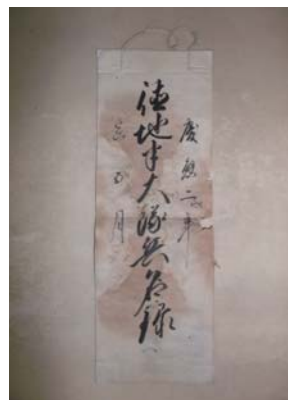 慶應二年
徳地半大隊兵名録
正月